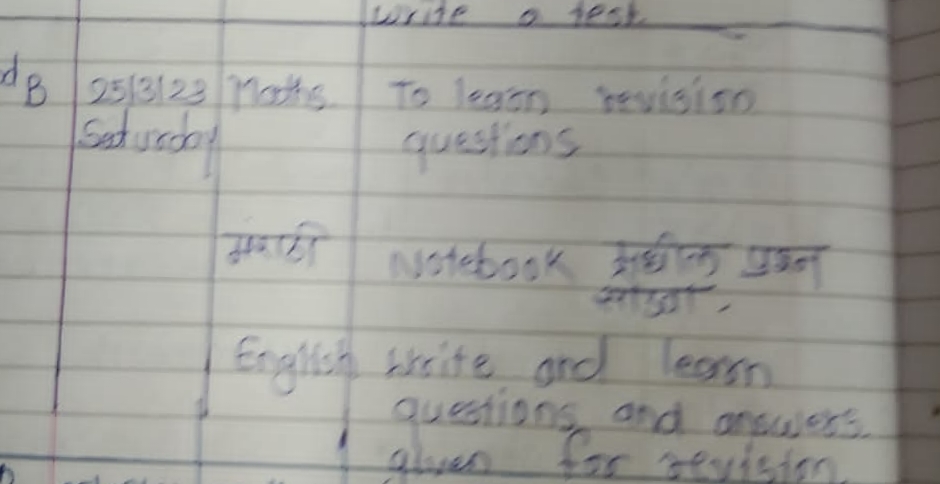 write a test
B 25/3/23 Maths To learn revision
Saturday questions
मराठी Notebook मधील प्रश्न
सोडवा.
English write and learn
questions and answers
given for revision